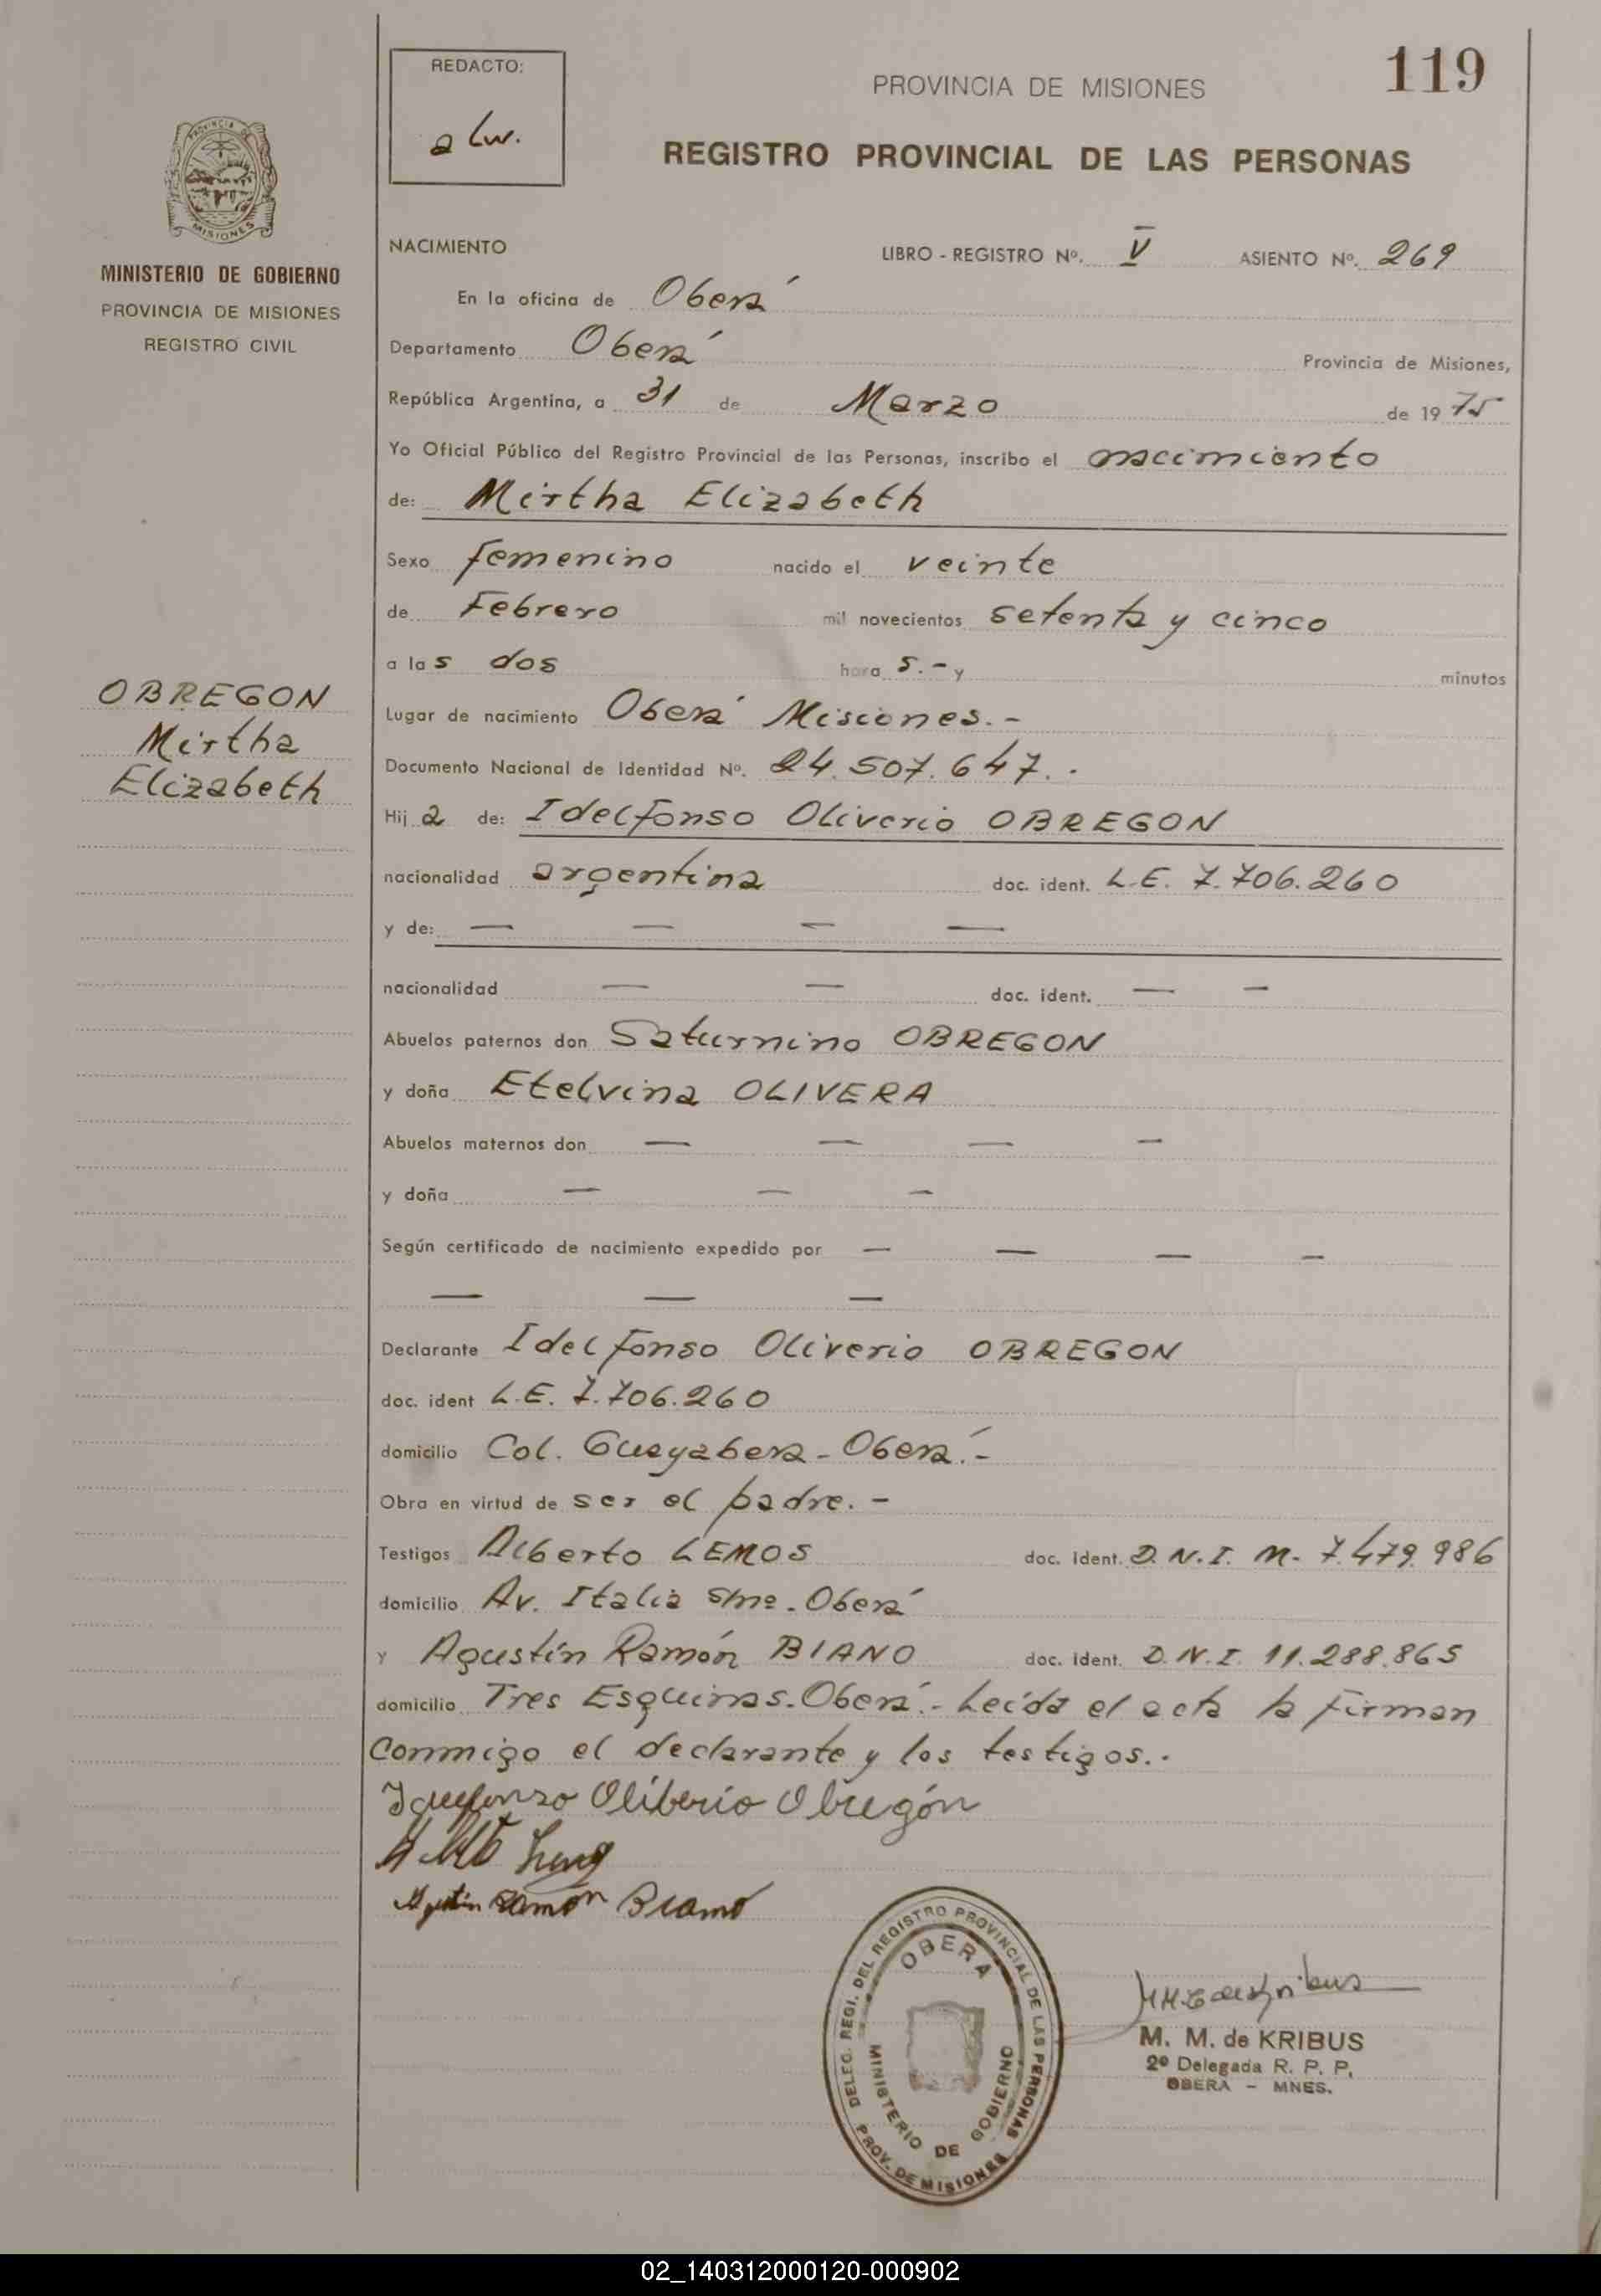 119
REDACTO:
PROVINCIA DE MISIONES
REGISTRO PROVINCIAL DE LAS PERSONAS
PROVINCIA DE
MISIONES
MINISTERIO DE GOBIERNO
PROVINCIA DE MISIONES
REGISTRO CIVIL
NACIMIENTO LIBRO - REGISTRO Nº. V ASIENTO Nº. 269
En la oficina de Oberá
Departamento Oberá Provincia de Misiones,
República Argentina, a 31 de Marzo de 1975
Yo Oficial Público del Registro Provincial de las Personas, inscribo el nacimiento
de: Mirtha Elizabeth
Sexo femenino nacido el veinte
de Febrero mil novecientos setenta y cinco
a las dos horas.- y minutos
OBREGON
Mirtha
Elizabeth
Lugar de nacimiento Oberá Misiones.-
Documento Nacional de Identidad Nº. 24.507.647.-
Hija de: Idelfonso Oliverio OBREGON
nacionalidad argentina doc. ident. L.E. 7.706.260
y de: — — — —
nacionalidad — — doc. ident. — —
Abuelos paternos don Saturnino OBREGON
y doña Etelvina OLIVERA
Abuelos maternos don — — — —
y doña — — —
Según certificado de nacimiento expedido por — — — —
— — —
Declarante Idelfonso Oliverio OBREGON
doc. ident L.E. 7.706.260
domicilio Col. Guayabera - Oberá.-
Obra en virtud de ser el padre.-
Testigos Alberto LEMOS doc. ident. D.N.I. M. 7.479.986
domicilio Av. Italia s/nº. Oberá
y Agustín Ramón BIANO doc. ident. D.N.I. 11.288.865
domicilio Tres Esquinas. Oberá.- Leída el acta la firman
conmigo el declarante y los testigos.-
Oliberio Obregón
Agustin Ramon Biano
DELEG. REGI. DEL REGISTRO PROVINCIAL DE LAS PERSONAS
OBERA
MINISTERIO DE GOBIERNO
PROV. DE MISIONES
M. M. de KRIBUS
2º Delegada R. P. P.
OBERA - MNES.
02_140312000120-000902